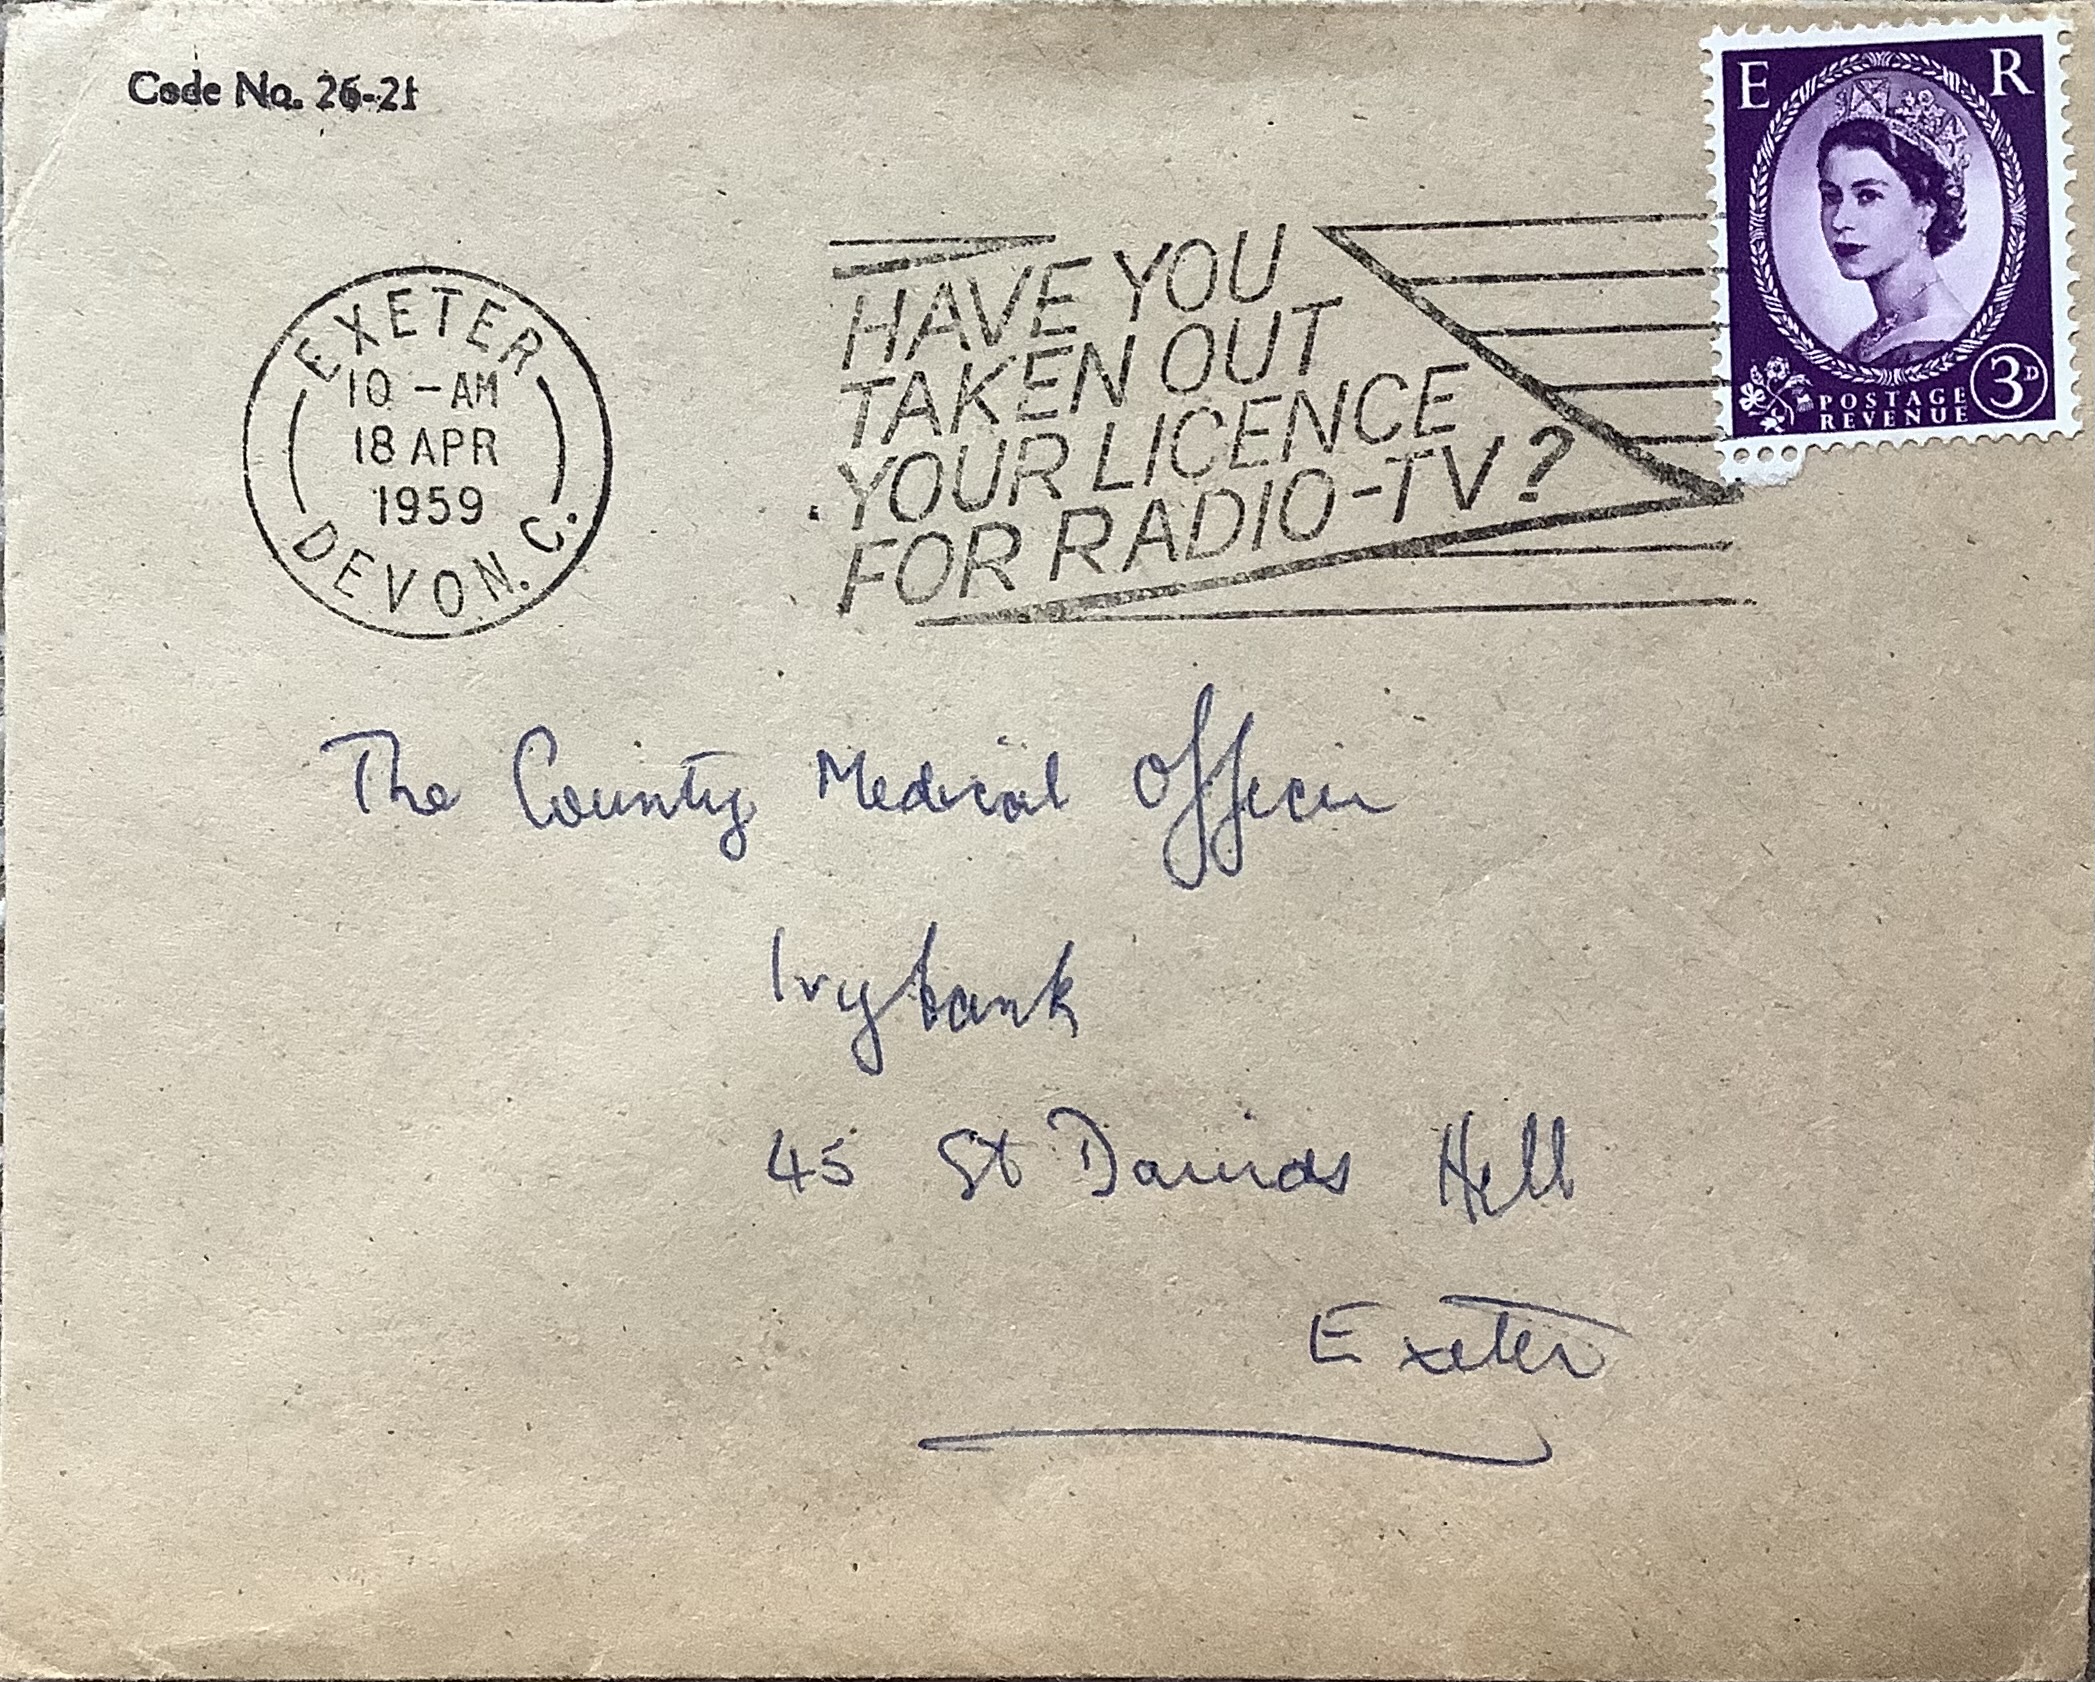 Code No. 26-21
E R
3D
POSTAGE
REVENUE
EXETER
10 - AM
18 APR
1959
DEVON. C.
HAVE YOU
TAKEN OUT
YOUR LICENCE
FOR RADIO-TV?
The County Medical Officer
Ivybank
45 St Davids Hill
Exeter